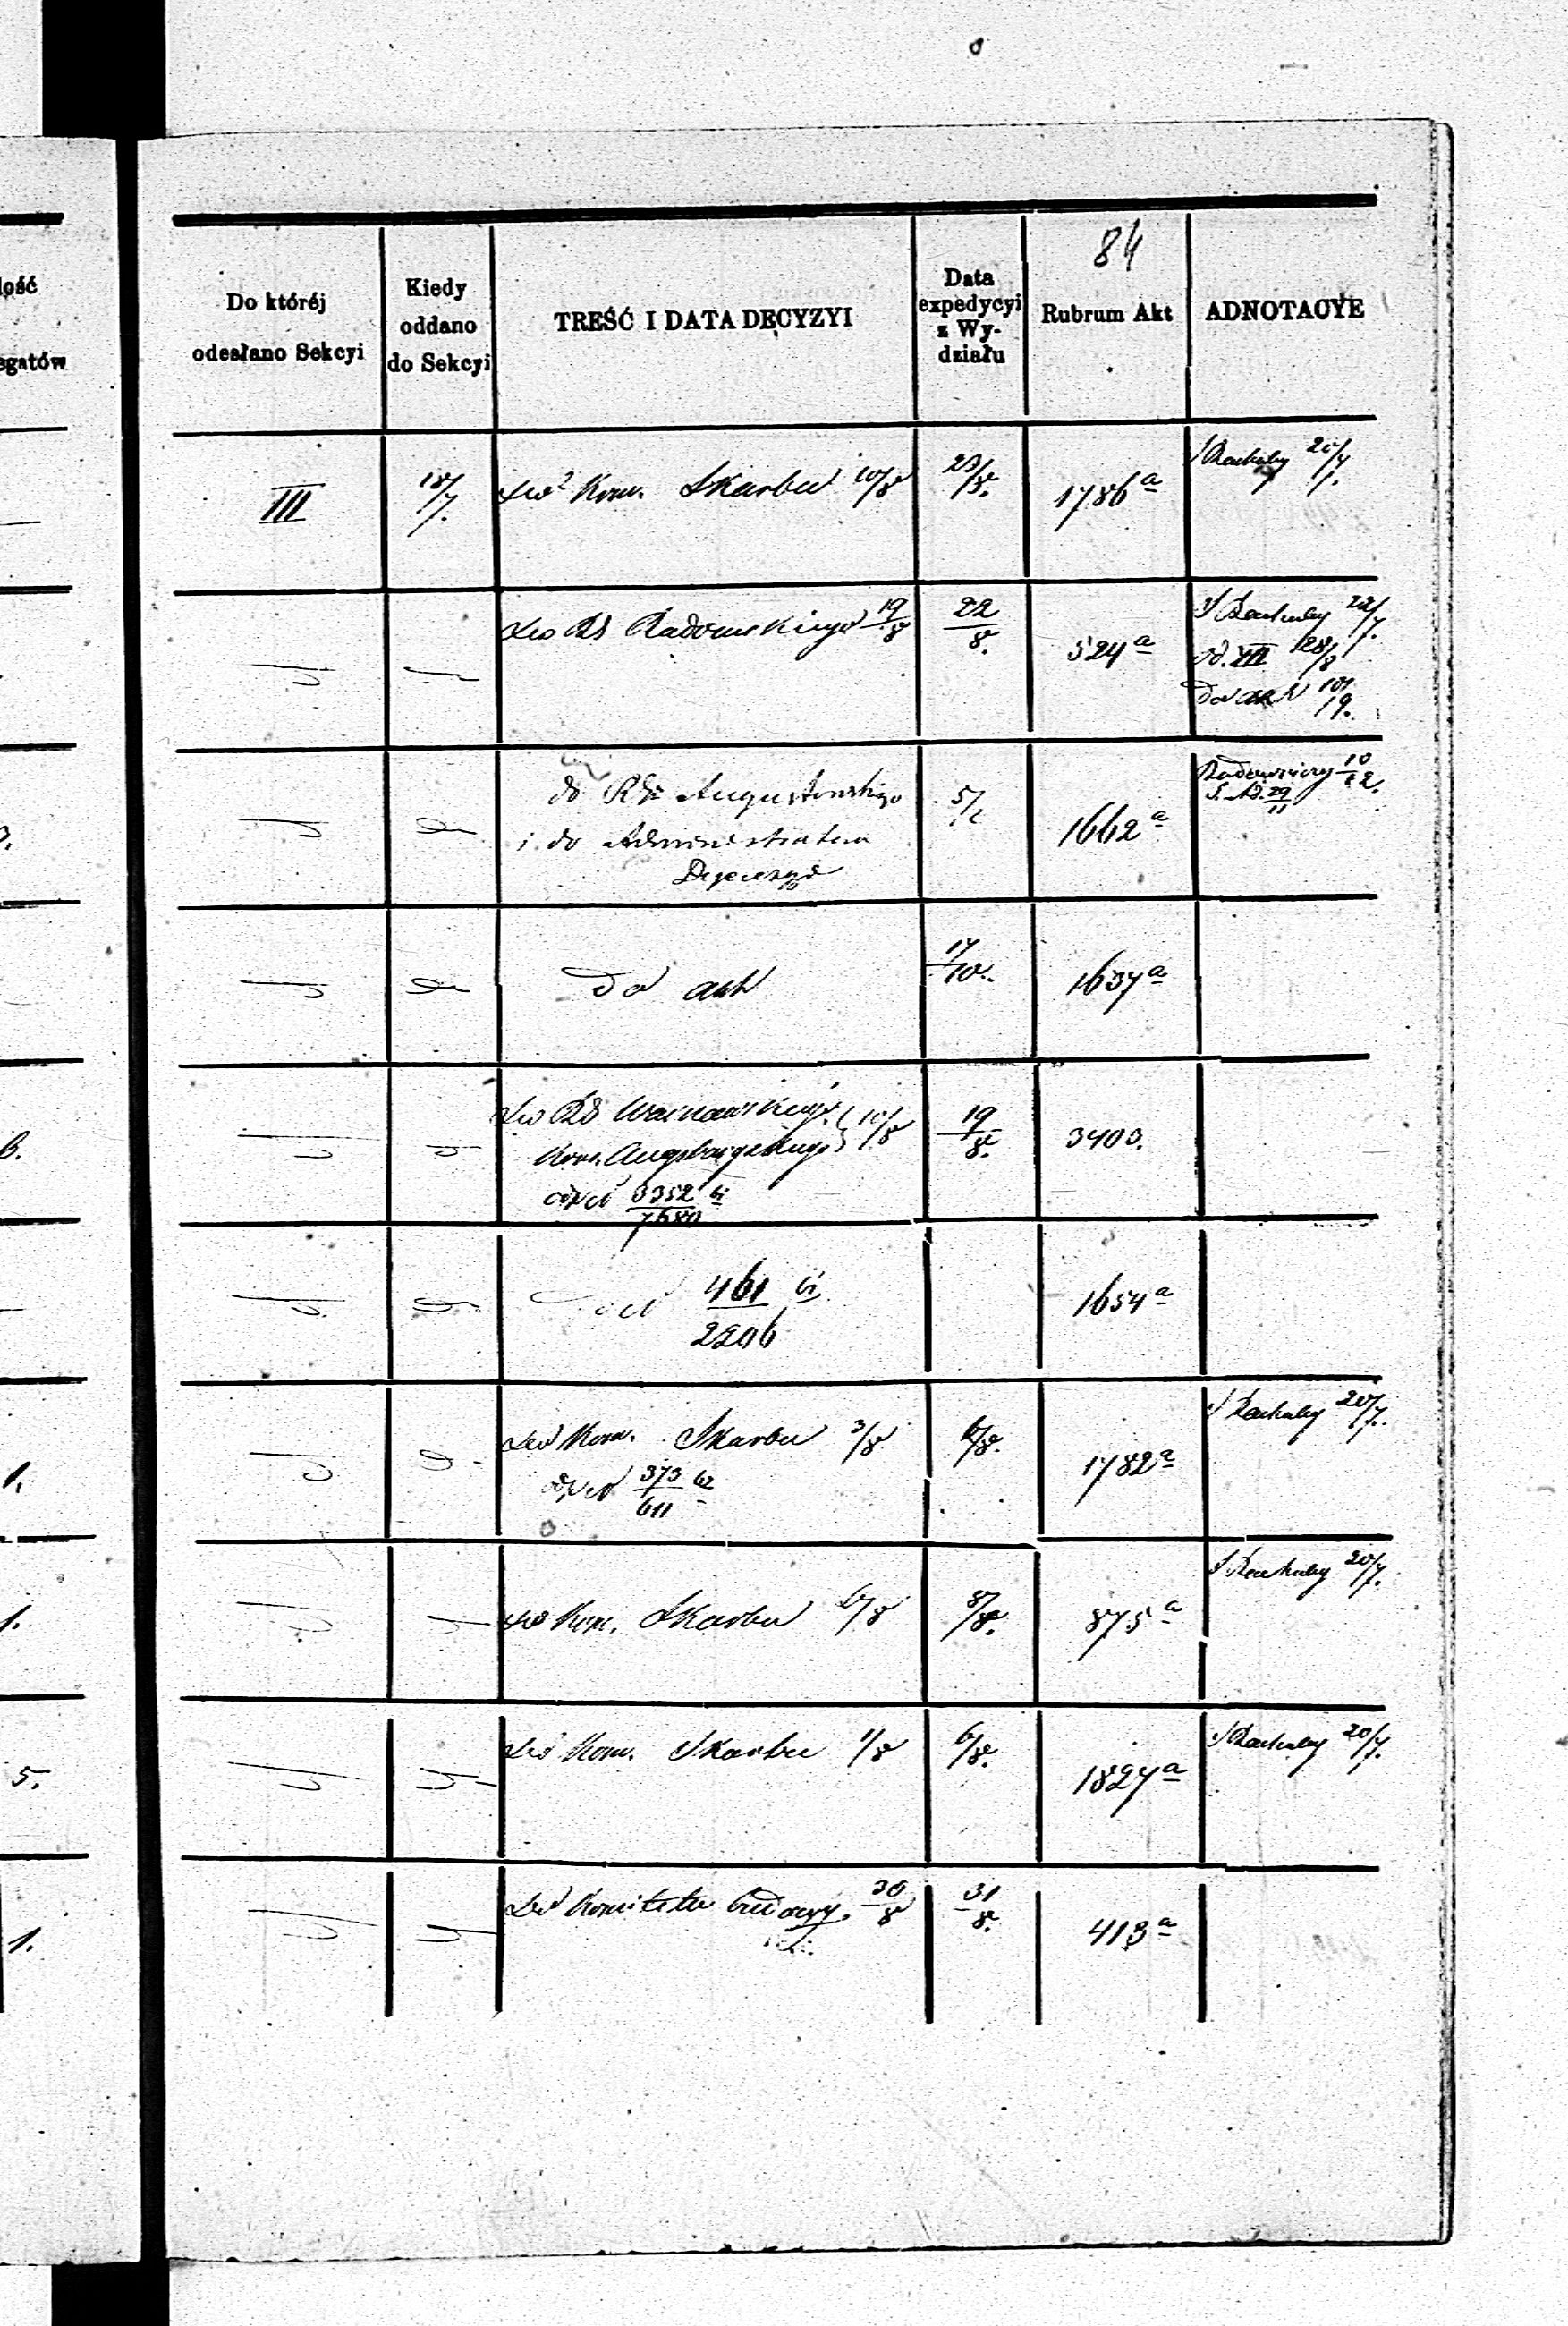 84
Do któréj
odesłano Sekcyi
Kiedy
oddano
do Sekcyi
TREŚĆ I DATA DECYZYI
Data
expedycyi
z Wy-
działu
Rubrum Akt
ADNOTACYE
lość
egatów
III
18/7.
Do Kom. Skarbu 10/8
23/8.
1786 a
S Rachuby 20/7.
Do RG Radomskiego 19/8
22/8.
524 a
S Rachuby 22/7.
od. III 28/8
Do akt 10/9.
do RG Augustowskiego
i do Administratora
1662 a
10/12.
29/11
Do akt
17/10.
1637 a
Do RG Warszawskiego 10/8
Kom.
3352/7680
19/8.
3403.
461/2206
1654 a
Do Kom. Skarbu 3/8
373/611
6/8.
1782 a
S Rachuby 20/7.
Do Kom. Skarbu 6/8
8/8.
875 a
S Rachuby 20/7.
Do Kom. Skarbu 1/8
6/8.
1827 a
S Rachuby 20/7.
Do Komitetu budowy 30/8
31/8.
413 a
6.
1.
1.
5.
1.